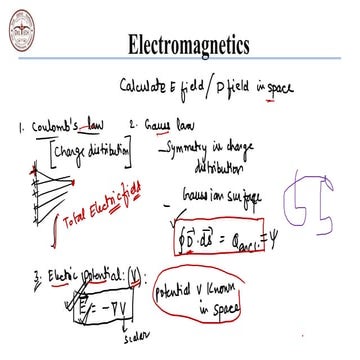 Electromagnetics
Calculate E field / D field in space
1. Coulomb's law
[Charge distribution]
Total Electric field
2. Gauss law
– Symmetry in charge
distribution
– Gaussian surface
∮D⃗·ds⃗ = Qencl. = Ψ
3. Electric potential: (V):
E⃗ = -∇V
scalar
potential V known
in space